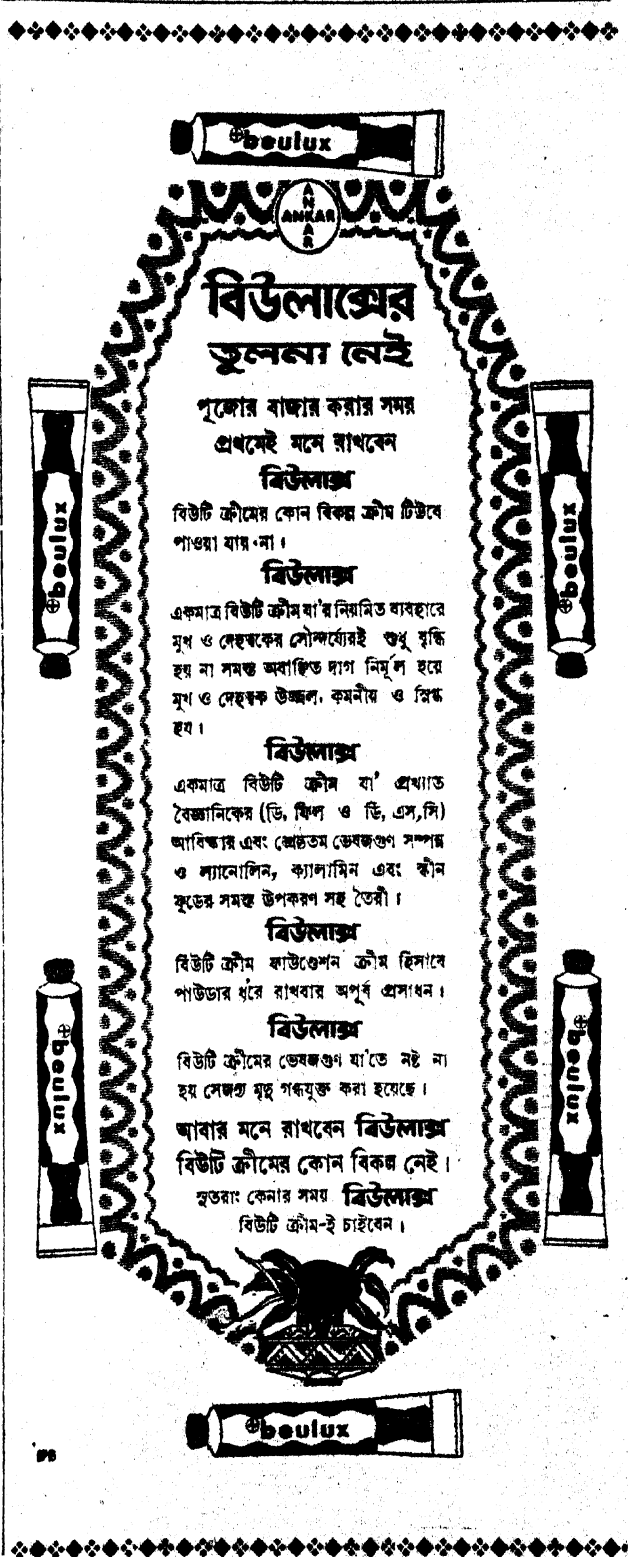 beulux
ANKAR
ANKAR
বিউলাক্সের
তুলনা নেই
পূজোর বাজার করার সময়
প্রথমেই মনে রাখবেন
বিউলাক্স
বিউটি ক্রীমের কোন বিকল্প ক্রীম টিউবে
পাওয়া যায় না।
বিউলাক্স
একমাত্র বিউটি ক্রীম যা'র নিয়মিত ব্যবহারে
মুখ ও দেহত্বকের সৌন্দর্য্যেরই শুধু বৃদ্ধি
হয় না সমস্ত অবাঞ্ছিত দাগ নির্মূল হয়ে
মুখ ও দেহত্বক উজ্জল, কমনীয় ও স্নিগ্ধ
হয়।
বিউলাক্স
একমাত্র বিউটি ক্রীম যা' প্রখ্যাত
বৈজ্ঞানিকের (ডি, ফিল ও ডি, এস,সি)
আবিষ্কার এবং শ্রেষ্ঠতম ভেষজগুণ সম্পন্ন
ও ল্যানোলিন, ক্যালামিন এবং স্কীন
ফুডের সমস্ত উপকরণ সহ তৈরী।
বিউলাক্স
বিউটি ক্রীম ফাউণ্ডেশন ক্রীম হিসাবে
পাউডার ধ'রে রাখবার অপূর্ব প্রসাধন।
বিউলাক্স
বিউটি ক্রীমের ভেষজগুণ যা'তে নষ্ট না
হয় সেজন্য মৃদু গন্ধযুক্ত করা হয়েছে।
আবার মনে রাখবেন বিউলাক্স
বিউটি ক্রীমের কোন বিকল্প নেই।
সুতরাং কেনার সময় বিউলাক্স
বিউটি ক্রীম-ই চাইবেন।
beulux
beulux
beulux
beulux
beulux